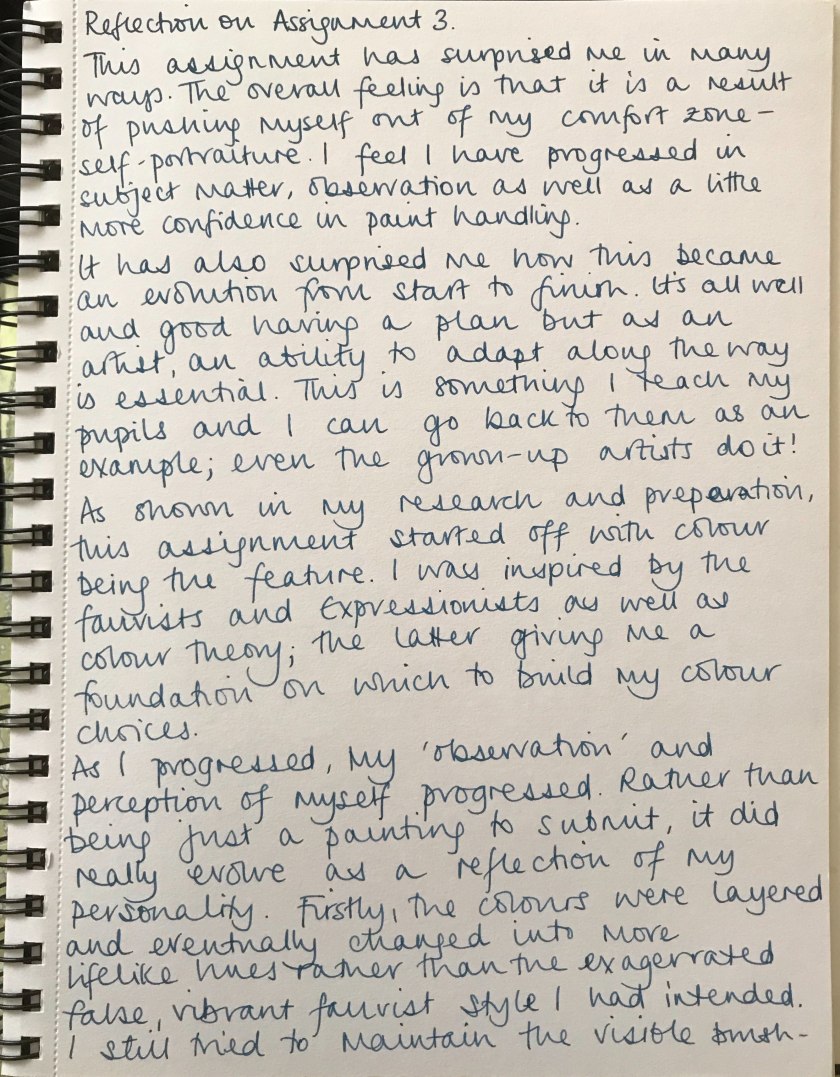 Reflection on Assignment 3.
This assignment has surprised me in many
ways. The overall feeling is that it is a result
of pushing myself out of my comfort zone -
self-portraiture. I feel I have progressed in
subject matter, observation as well as a little
more confidence in paint handling.
It has also surprised me how this became
an evolution from start to finish. It's all well
and good having a plan but as an
artist, an ability to adapt along the way
is essential. This is something I teach my
pupils and I can go back to them as an
example; even the grown-up artists do it!
As shown in my research and preparation,
this assignment started off with colour
being the feature. I was inspired by the
fauvists and Expressionists as well as
colour theory; the latter giving me a
foundation on which to build my colour
choices.
As I progressed, my 'observation' and
perception of myself progressed. Rather than
being just a painting to submit, it did
really evolve as a reflection of my
personality. Firstly, the colours were layered
and eventually changed into more
lifelike hues rather than the exagerrated
false, vibrant fauvist style I had intended.
I still tried to maintain the visible brush-